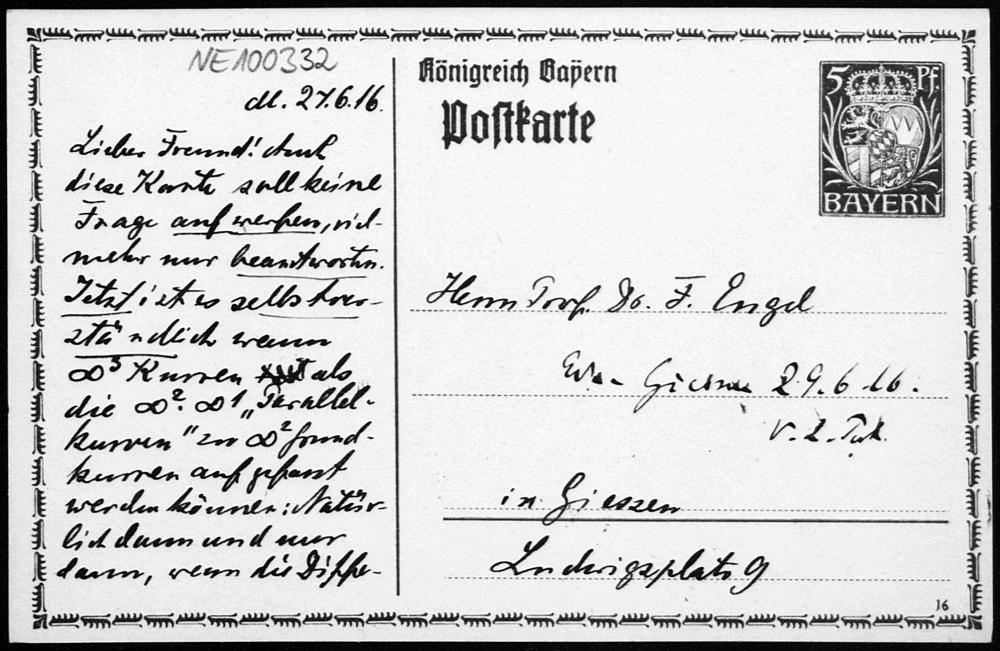 NE100332
M. 27.6.16.
Lieber Freund! Auch
diese Karte soll keine
Frage aufwerfen, viel-
mehr nur beantworten.
Jetzt ist es selbstver-
ständlich wann
∞³ Kurven als
die ∞². ∞1 „Parallel-
kurven" zu ∞² Grund-
kurven aufgefasst
werden können: Natür-
lich dann und nur
dann, wenn die Diffe-
Königreich Bayern
Postkarte
5 Pf.
BAYERN
Herrn Prof. Dr. F. Engel
Giessen 29.6.16.
in Giessen
Ludwigsplatz 9
16